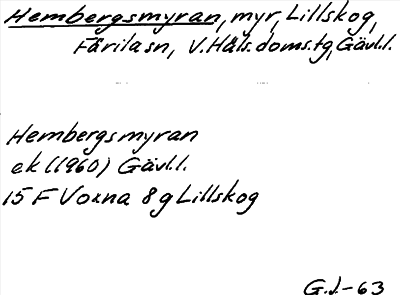 Hembergsmyran, myr, Lillskog,
Färila sn, V. Häls. doms. tg, Gävl.l.
Hembergsmyran
ek (1960) Gävl.l.
15 F Voxna 8 g Lillskog
G.J.-63